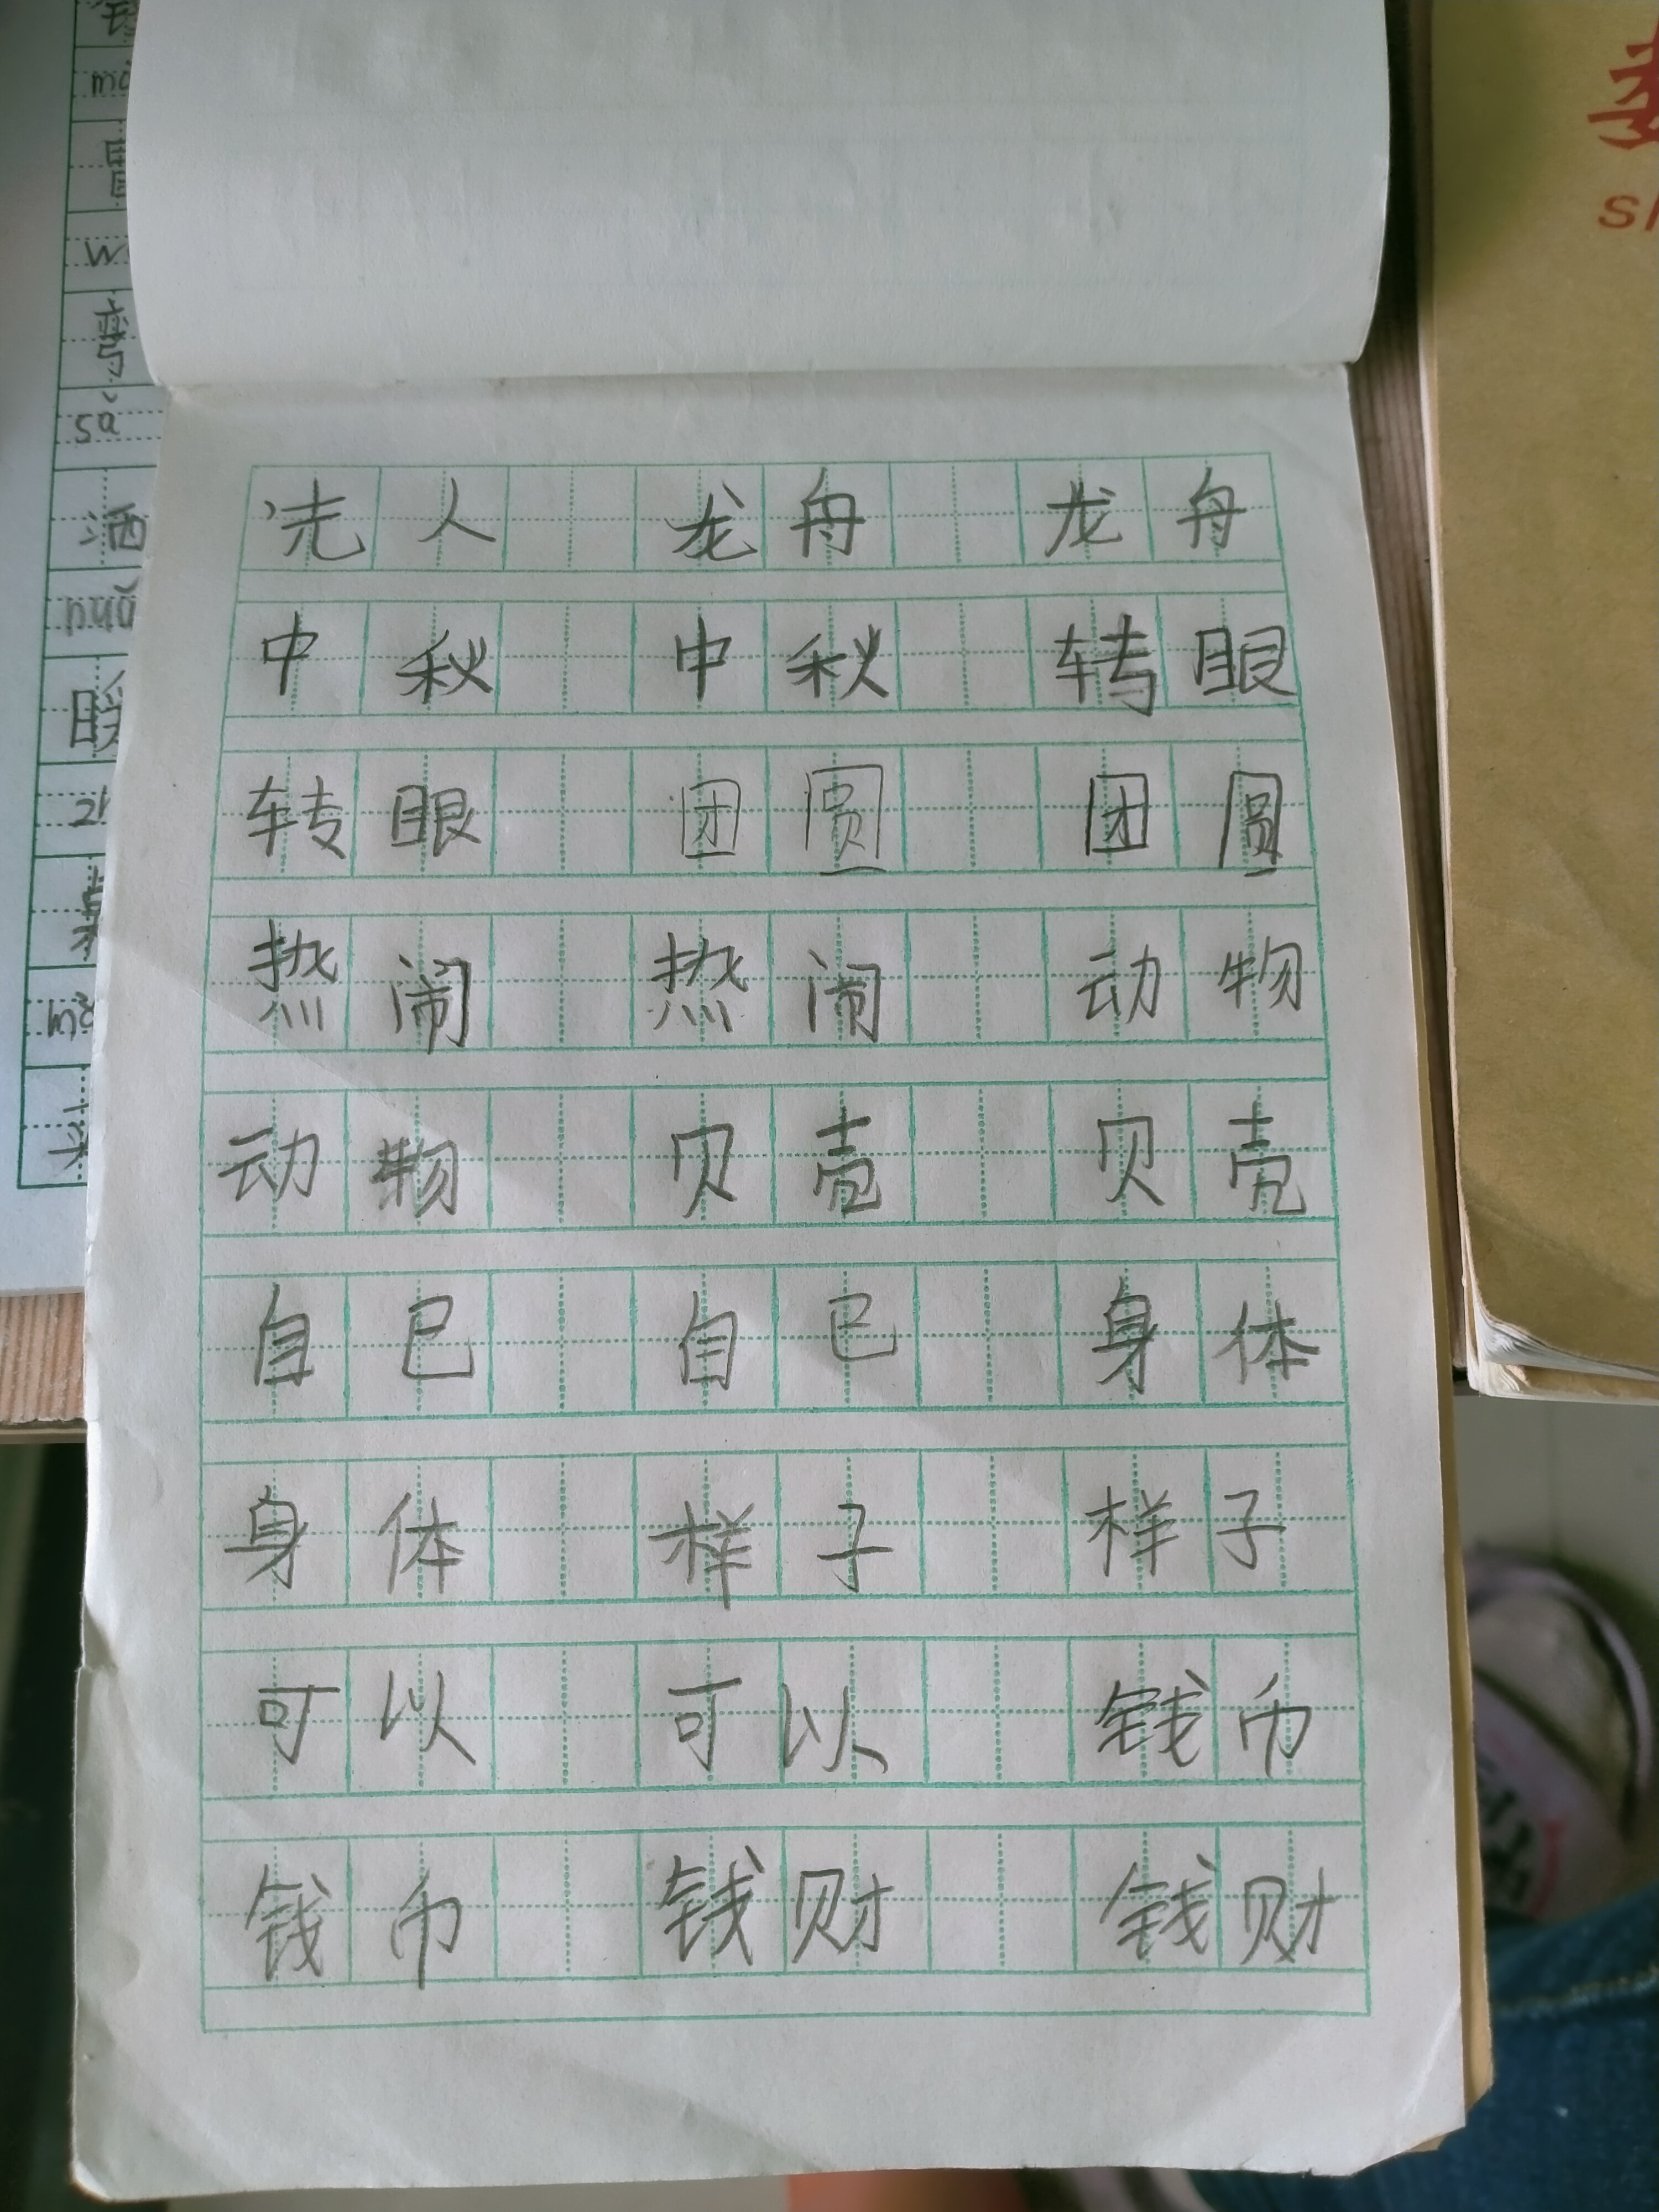 先人 龙舟 龙舟
中秋 中秋 转眼
转眼 团圆 团圆
热闹 热闹 动物
动物 贝壳 贝壳
自己 自己 身体
身体 样子 样子
可以 可以 钱币
钱币 钱财 钱财
冒
弯
sǎ
洒
nuǎ
暖